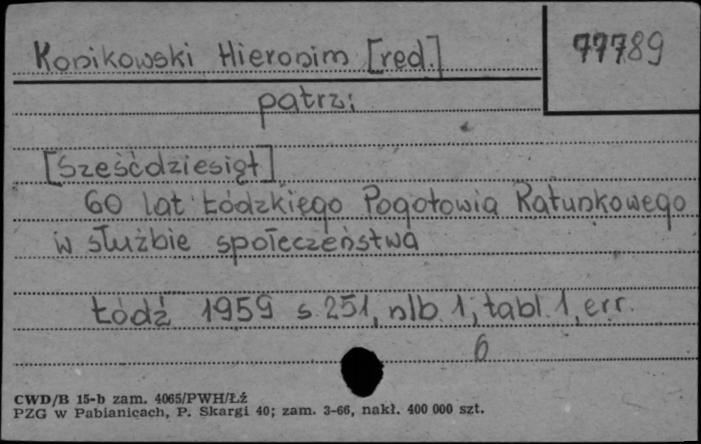 Konikowski Hieronim [red.]
77789
patrz:
[Sześćdziesiąt]
60 lat Łódzkiego Pogotowia Ratunkowego
w służbie społeczeństwa
Łódź 1959 s. 251, nlb. 1, tabl. 1, err.
6
CWD/B 15-b zam. 4065/PWH/Łź
PZG w Pabianicach, P. Skargi 40; zam. 3-66, nakł. 400 000 szt.